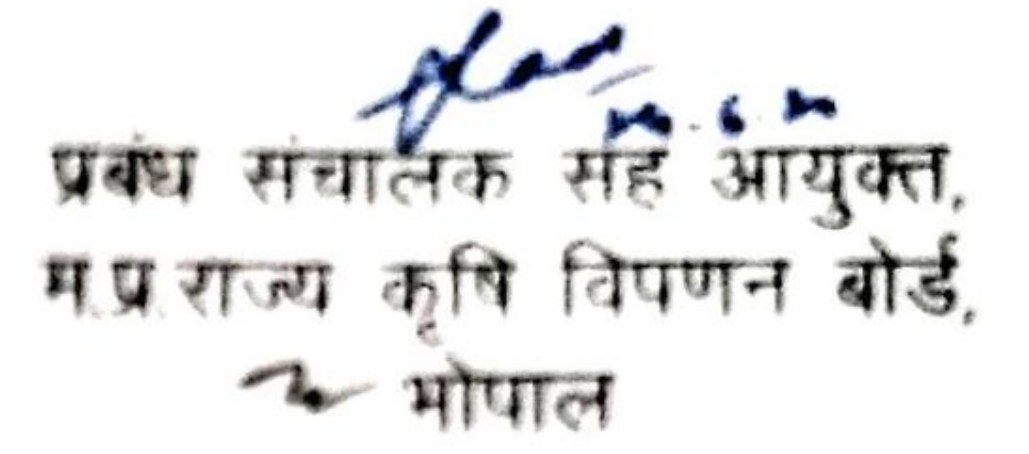 प्रबंध संचालक सह आयुक्त,
म.प्र.राज्य कृषि विपणन बोर्ड,
भोपाल